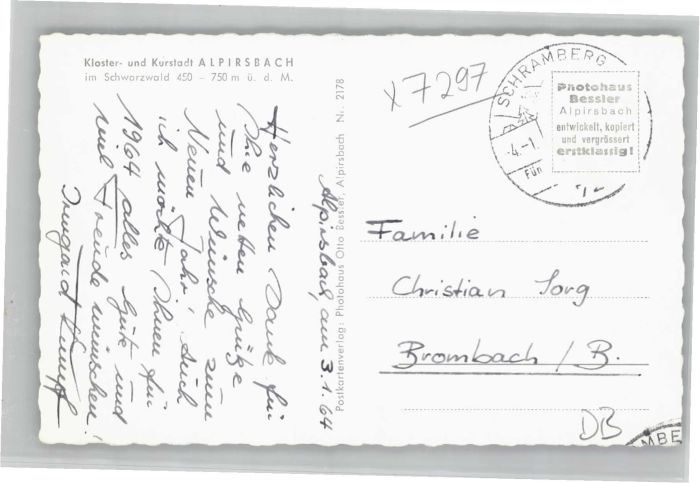 Kloster- und Kurstadt ALPIRSBACH
im Schwarzwald 450 – 750 m ü. d. M.
x 7297
SCHRAMBERG
4.-1.
Für
Photohaus
Bessler
Alpirsbach
entwickelt, kopiert
und vergrössert
erstklassig!
Alpirsbach, am 3.1.64
Herzlichen Dank für
Ihre netten Grüße
und Wünsche zum
Neuen Jahr! Auch
ich möchte Ihnen für
1964 alles Gute und
viel Freude wünschen!
Irmgard Kumpf
Postkartenverlag: Photohaus Otto Bessler, Alpirsbach Nr. 2178
Familie
Christian Jorg
Brombach / B.
DB
MBE